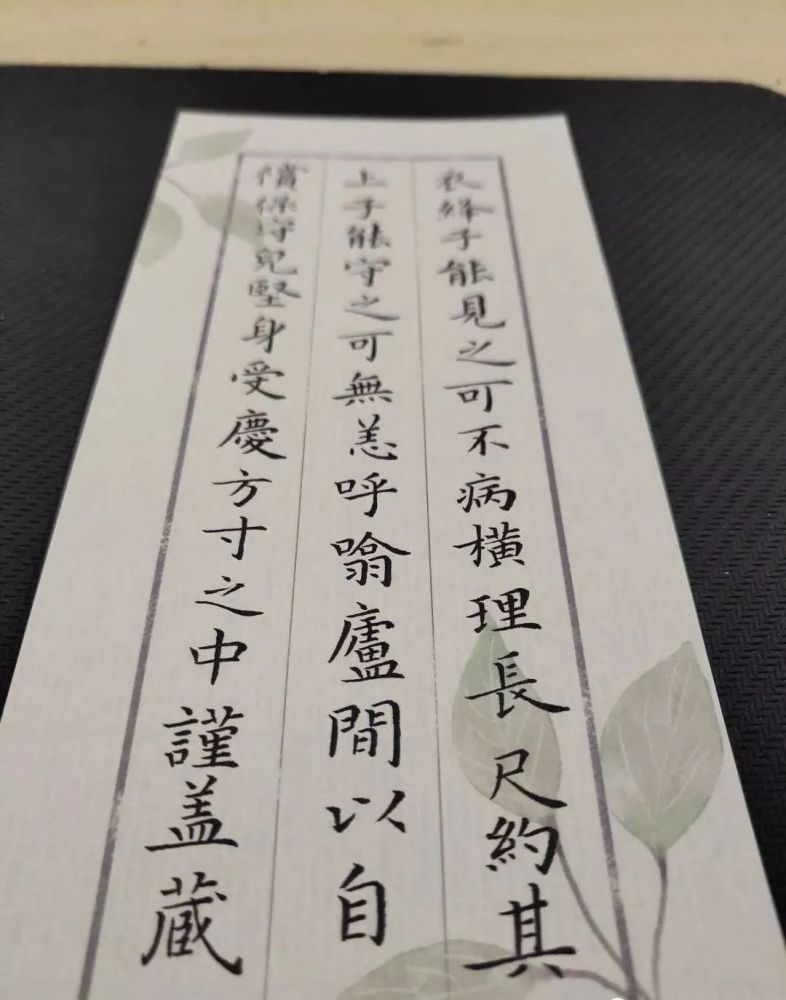 衣絳子能見之可不病橫理長尺約其
上子能守之可無恙呼噏廬間以自
償保守兒堅身受慶方寸之中謹盖藏